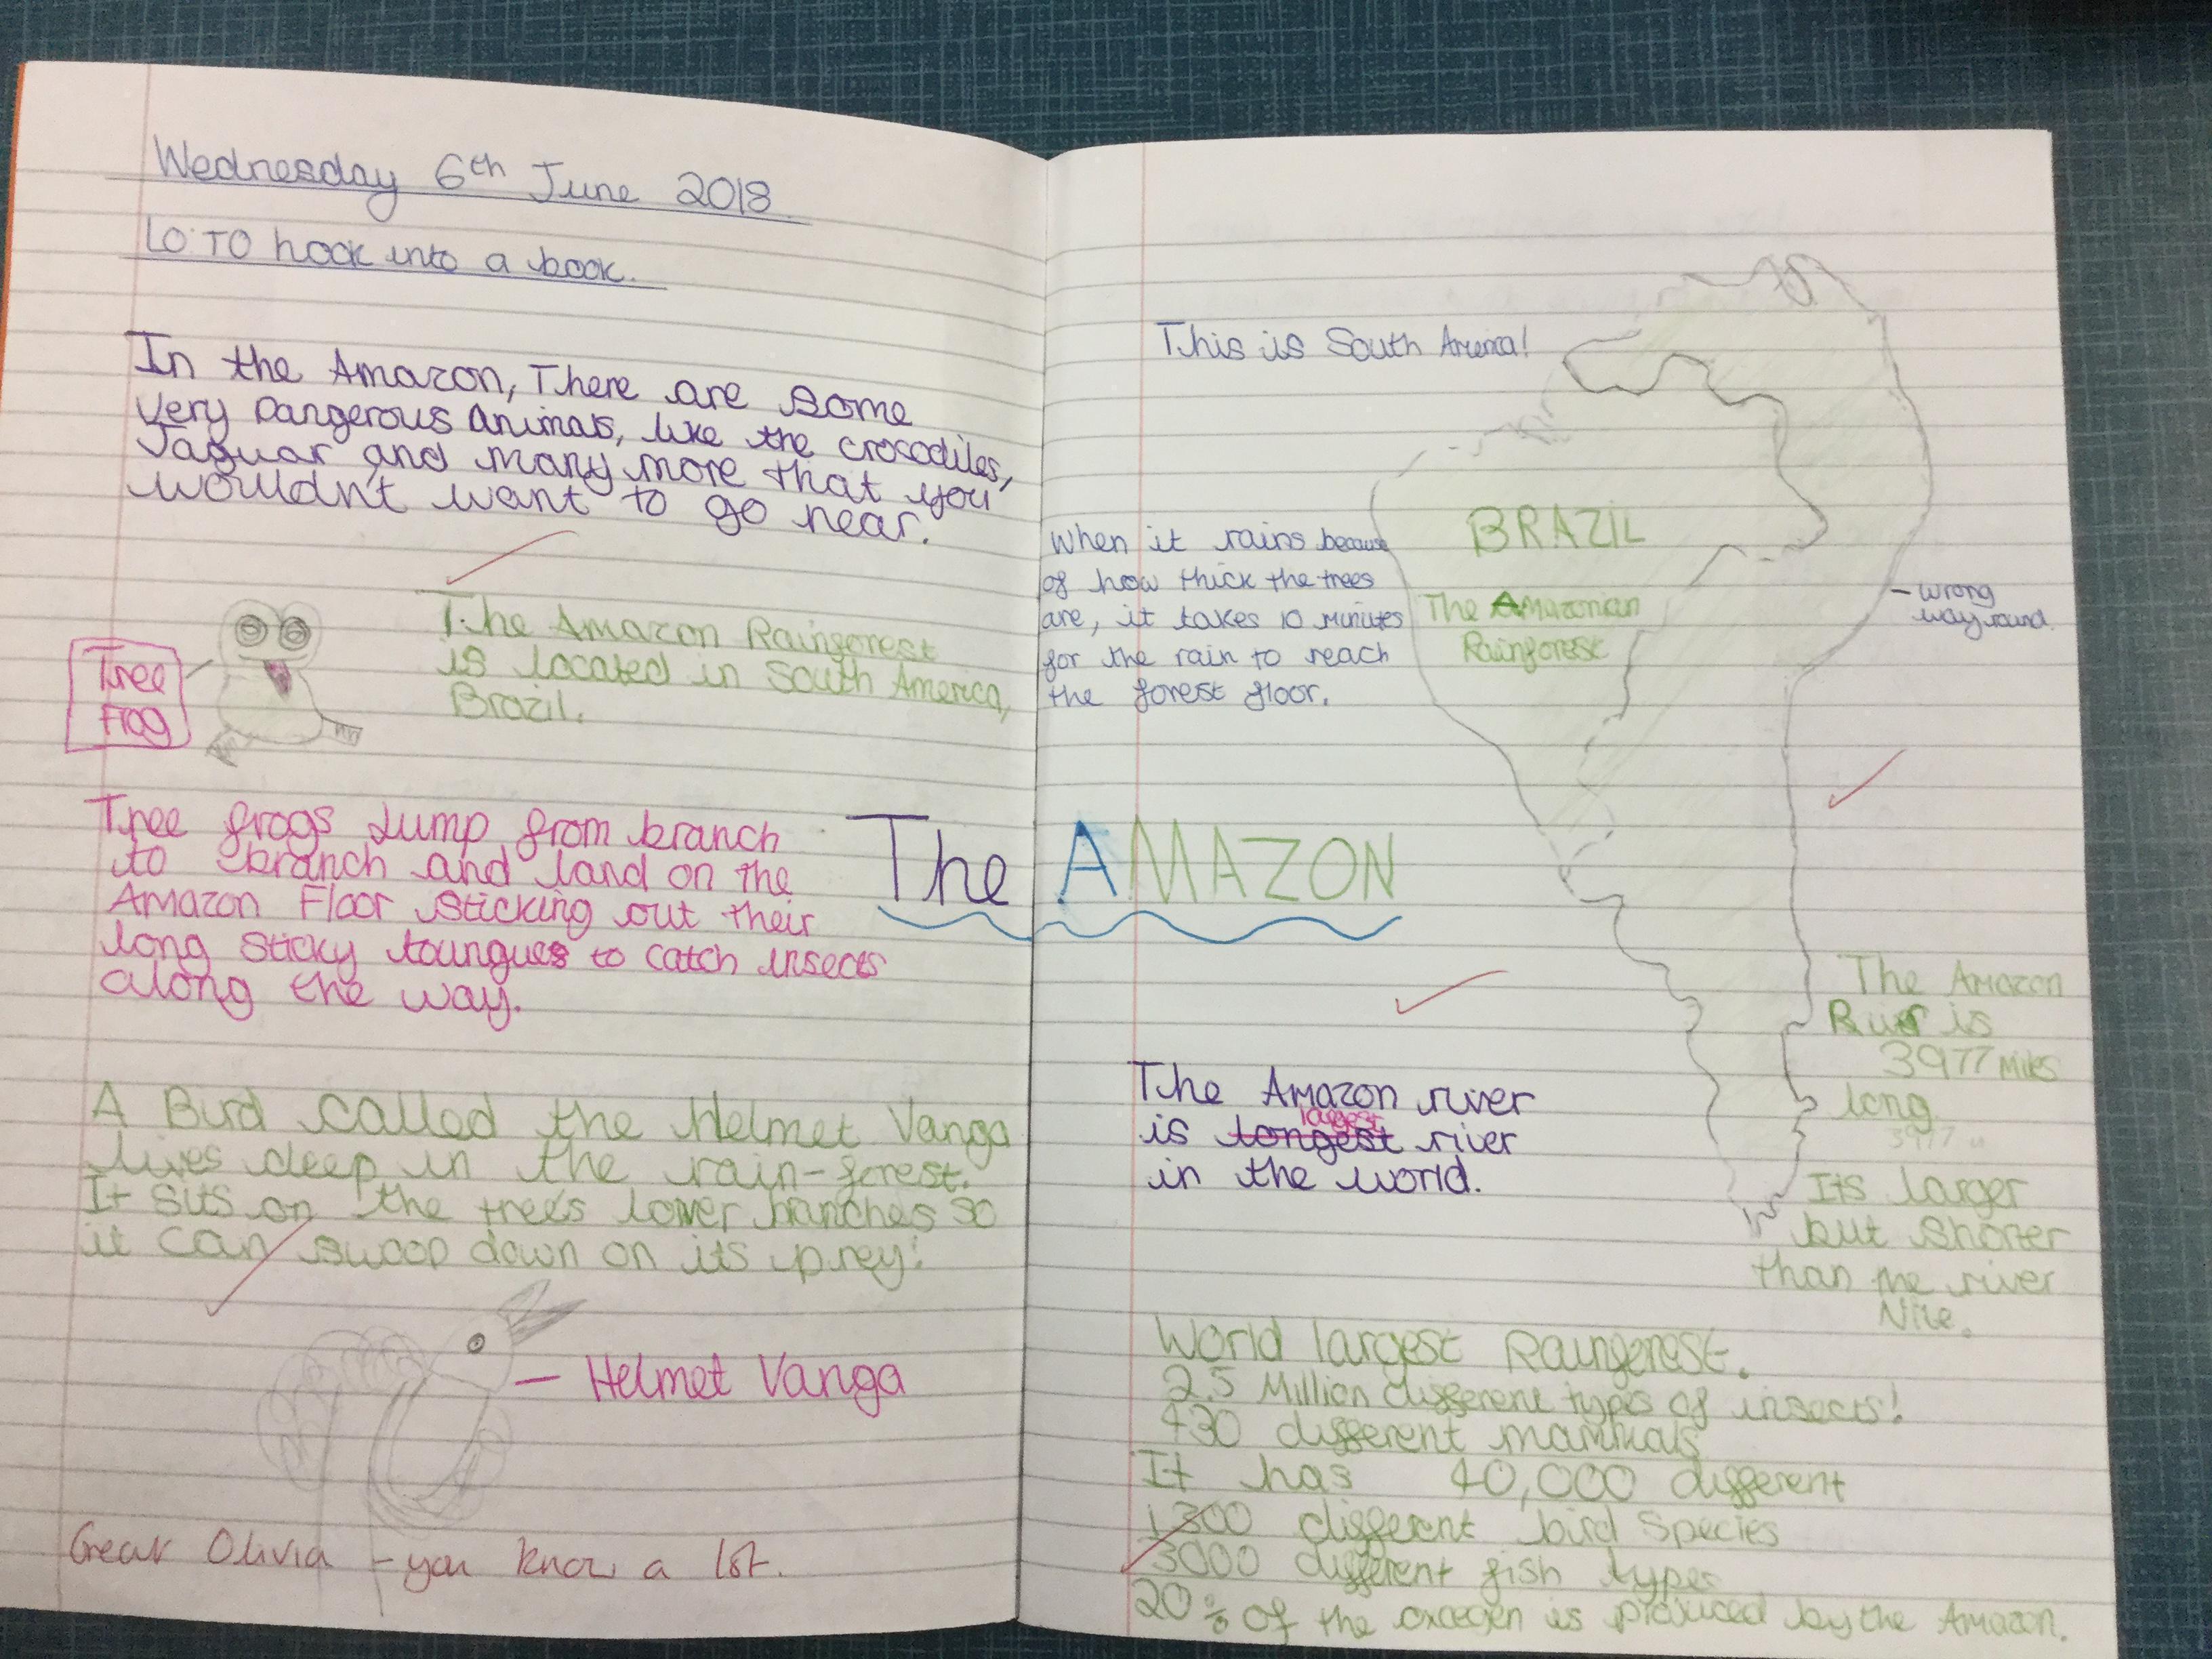 Wednesday 6th June 2018
LO: TO hook into a book.
In the Amazon, There are some
very Dangerous Animals, like the crocodiles,
Jaguar and many more that you
wouldn't want to go near.
Tree
Frog
The Amazon Rainforest
is located in South America,
Brazil.
Tree frogs Jump from branch
to branch and land on the
Amazon Floor sticking out their
long sticky toungues to catch insects
along the way.
A Bird called the Helmet Vanga
lives deep in the rain-forest.
It sits on the trees lower branches so
it can swoop down on its prey!
Helmet Vanga
Great Olivia - you know a lot.
The AMAZON
This is South America!
When it rains because
of how thick the trees
are, it takes 10 minutes
for the rain to reach
the forest floor.
BRAZIL
The Amazonian
Rainforest
- wrong
way round
The Amazon river
is longest largest river
in the world.
The Amazon
River is
3977 Miles
long
3977
Its larger
but shorter
than the river
Nile.
World largest Rainforest.
2.5 Million different types of insects!
430 different mammals
It has 40,000 different
1300 different bird species
3000 different fish types
20% of the oxcegen is produced by the Amazon.